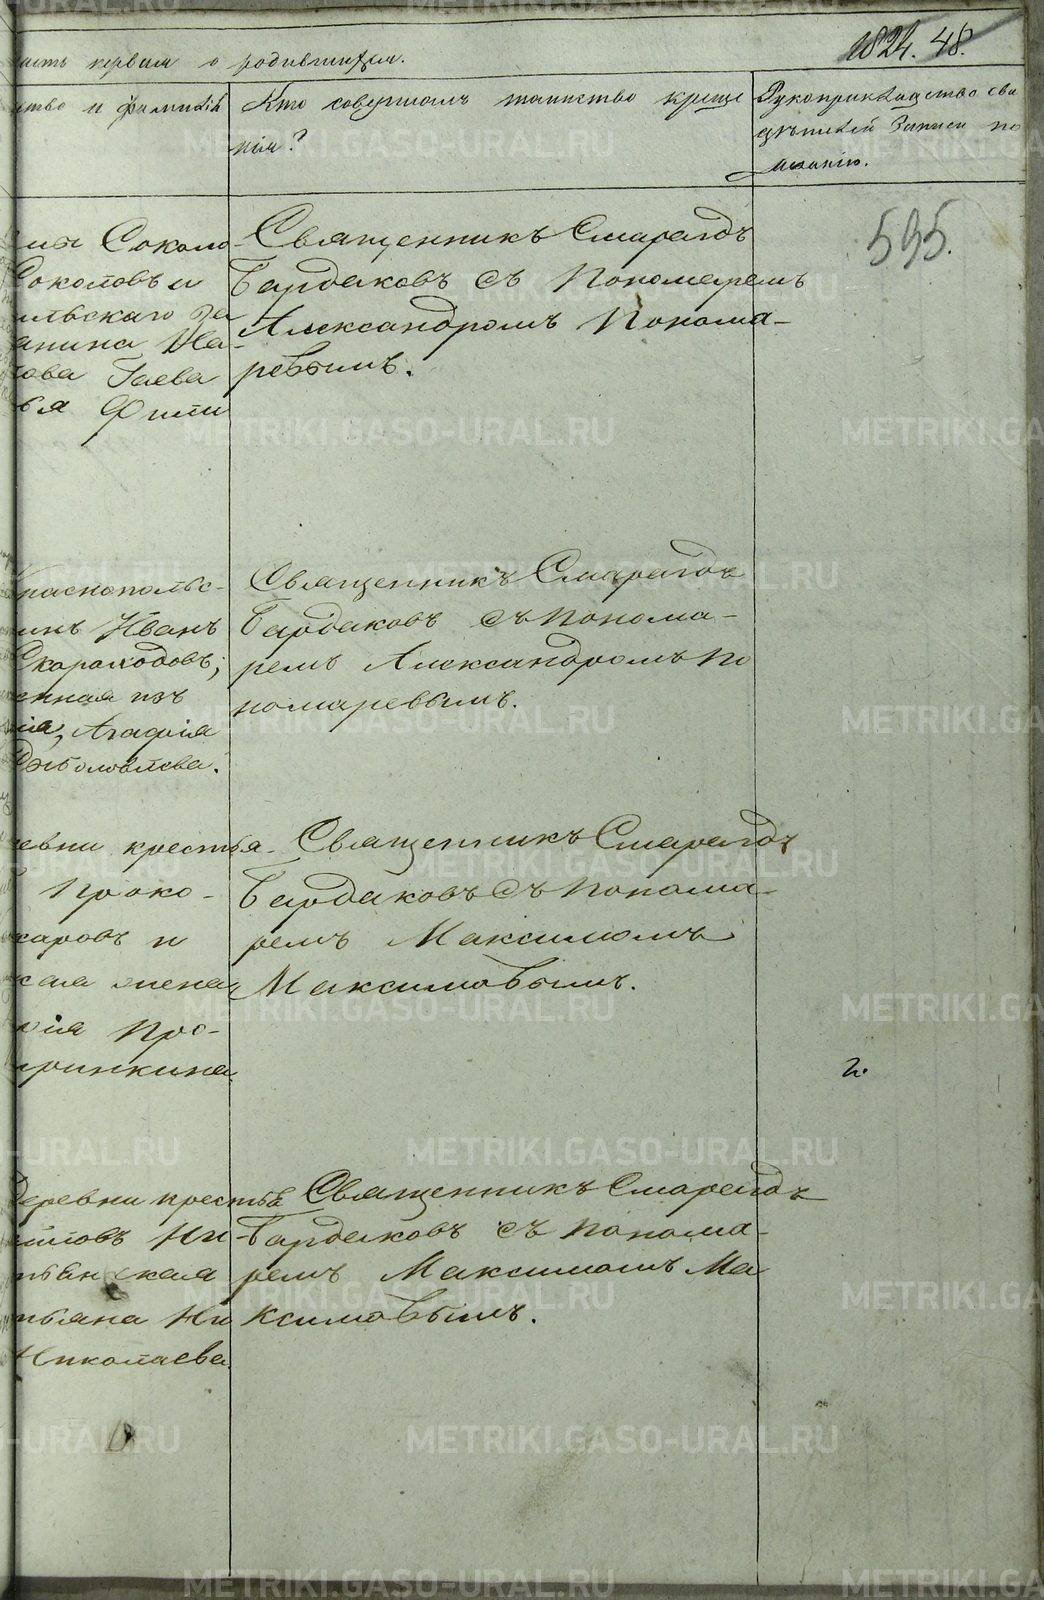 1824. 48.
часть первая о родившихся.
ство и фамилія
Кто совершалъ таинство креще
нія?
Рукоприкладство сви
записи по
желанію.
595.
Соколо-
Соколовъ и
ильскаго за
анина
Гаева
Фили
Священникъ Смарагдъ
Бардаковъ съ Пономаремъ
Александромъ Понома-
ревымъ.
Краснопольс-
инъ Иванъ
Скороходовъ;
енная изъ
нія, Агафія
Священникъ Смарагдъ
Бардаковъ съ Понома-
ремъ Александромъ По
номаревымъ.
евни крестья-
Проко-
каровъ и
ская жена
рія Про-
Священникъ Смарагдъ
Бардаковъ съ Понома-
ремъ Максимомъ
Максимовымъ.
2.
деревни крестья
Ни-
ская
тьяна Ни
Николаева
Священникъ Смарагдъ
Бардаковъ съ Понома-
ремъ Максимомъ Ма
ксимовымъ.
METRIKI.GASO-URAL.RU